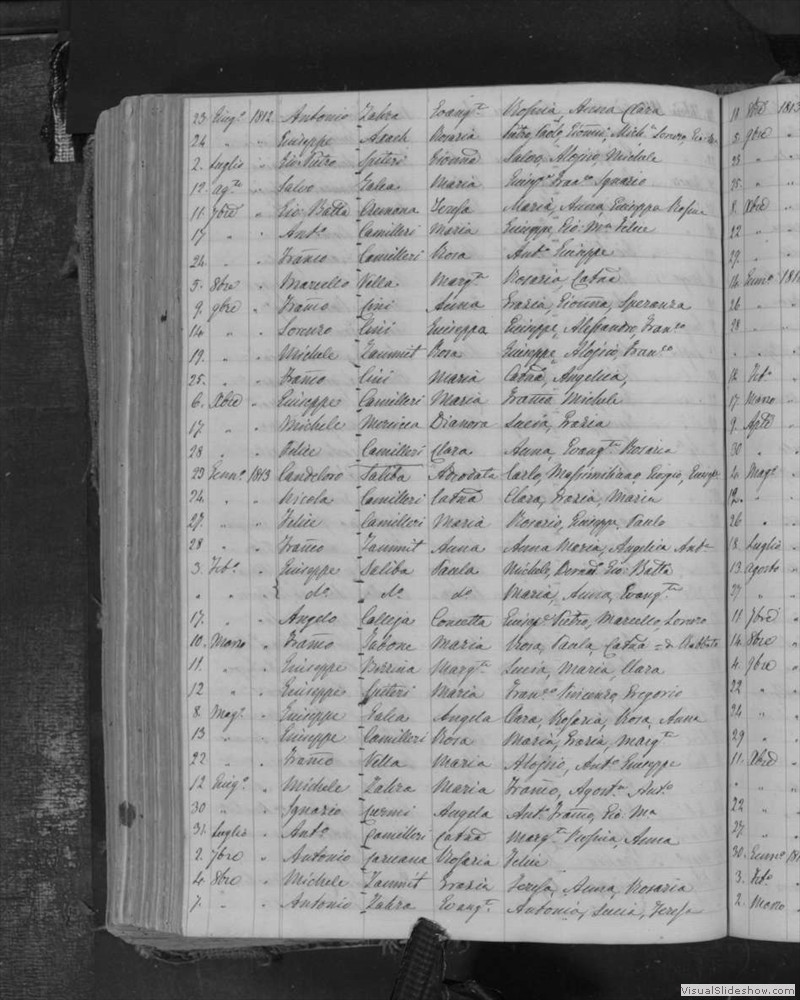 23 Giug.o 1812 Antonio Zahra Evang.ta Rosina Anna Clara
24 " " Giuseppe Axach Rosaria Pietro Paolo Lorenzo
2. Luglio " Gio: Pietro Spiteri Gionna Salvo, Aloisio, Michele
12. ag.to " Salvo Falca Maria Giusp.e Fran.co Ignazio
11. 7bre " Gio: Batta Cremona Teresa Maria, Anna, Giuseppa Rosina
17 " " Ant.o Camilleri Maria Giuseppe, Gio: M.a Felice
24. " " Franco Camilleri Rosa Ant.o Giuseppe
5. 8bre " Marcello Vella Marg.ta Rosaria, Catna
9. 9bre " Franco Cini Anna Grazia, Gionna, Speranza
14 " " Lorenzo Cini Giuseppa Giuseppe, Alessandro, Fran.co
19. " " Michele Zammit Rosa Giuseppe, Aloisio, Fran.co
25. " " Franco Cini Maria Catna, Angelica,
6. Xbre " Giuseppe Camilleri Maria Franca Michele
17 " " Michele Dianora Lucia, Grazia
28 " " Felice Camilleri Clara Anna, Evang.ta Rosaria
23 Genn.o 1813 Candeloro Saliba Adorata Carlo, Massimiliano, Giorgio, Giusp.e
24. " " Nicola Camilleri Catna Clara, Grazia, Maria
27. " " Felice Camilleri Maria Rosario, Giuseppe, Paolo
28 " " Franco Zammit Anna Anna Maria, Angelica Ant.a
3. Feb.o " Giuseppe Saliba Paula Michele, Bernard. Gio: Batta
" " { d.o d.o d.o Maria, Anna, Evang.ta
17. " " Angelo Calleja Concetta Giusp.e Pietro, Marcello Lorenzo
10. Marzo " Franco Zabone Maria Rosa, Paula, Catna
11. " " Giuseppe Marg.ta Lucia, Maria, Clara
12 " " Giuseppe Spiteri Maria Fran.co Vincenzo, Gregorio
8. Mag.o " Giuseppe Falca Angela Clara, Rosaria, Rosa, Anna
13 " " Giuseppe Camilleri Rosa Maria, Grazia, Marg.ta
22 " " Franco Vella Maria Aloisio, Ant.o Giuseppe
12 Giug.o " Michele Zahra Maria Franco, Agost.o Ant.o
30 " " Ignazio Curmi Angela Ant.o Franco, Gio: Ma
31. Luglio " Ant.o Camilleri Catna Marg.ta Rosina, Anna
2. 7bre " Antonio Caruana Rosaria Felice
4. 8bre " Michele Zammit Grazia Teresa, Anna, Rosaria
7. " " Antonio Zahra Evang.ta Antonia, Lucia, Teresa
11 8bre 1813
5. 9bre "
23 " "
25. " "
8. Xbre "
22 " "
29. " "
14 Genn.o 181
26 " "
28 " "
" "
12 Feb.o "
17 Marzo "
9. Aple "
30 "
4. Mag.o "
12. "
26 "
18 Luglio
13. agosto
27 "
11. 7bre
14. 8bre
4. 9bre
22 "
24 "
29 "
11. Xbre
" "
22 "
27. "
30. Genn.o 181
3. Feb.o
2. Marzo
VisualSlideshow.com